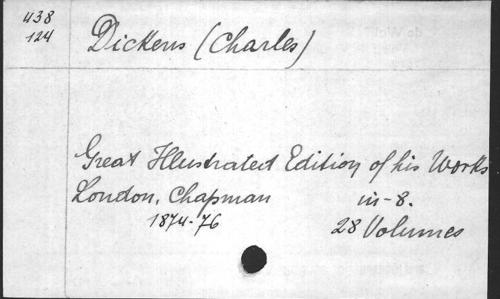 438
124
Dickens (Charles)
Great Illustrated Edition of his Works
London, Chapman in-8.
1874-76 28 Volumes